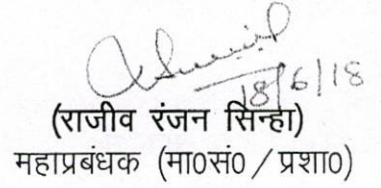 18/6/18
(राजीव रंजन सिन्हा)
महाप्रबंधक (मा0सं0 / प्रशा0)